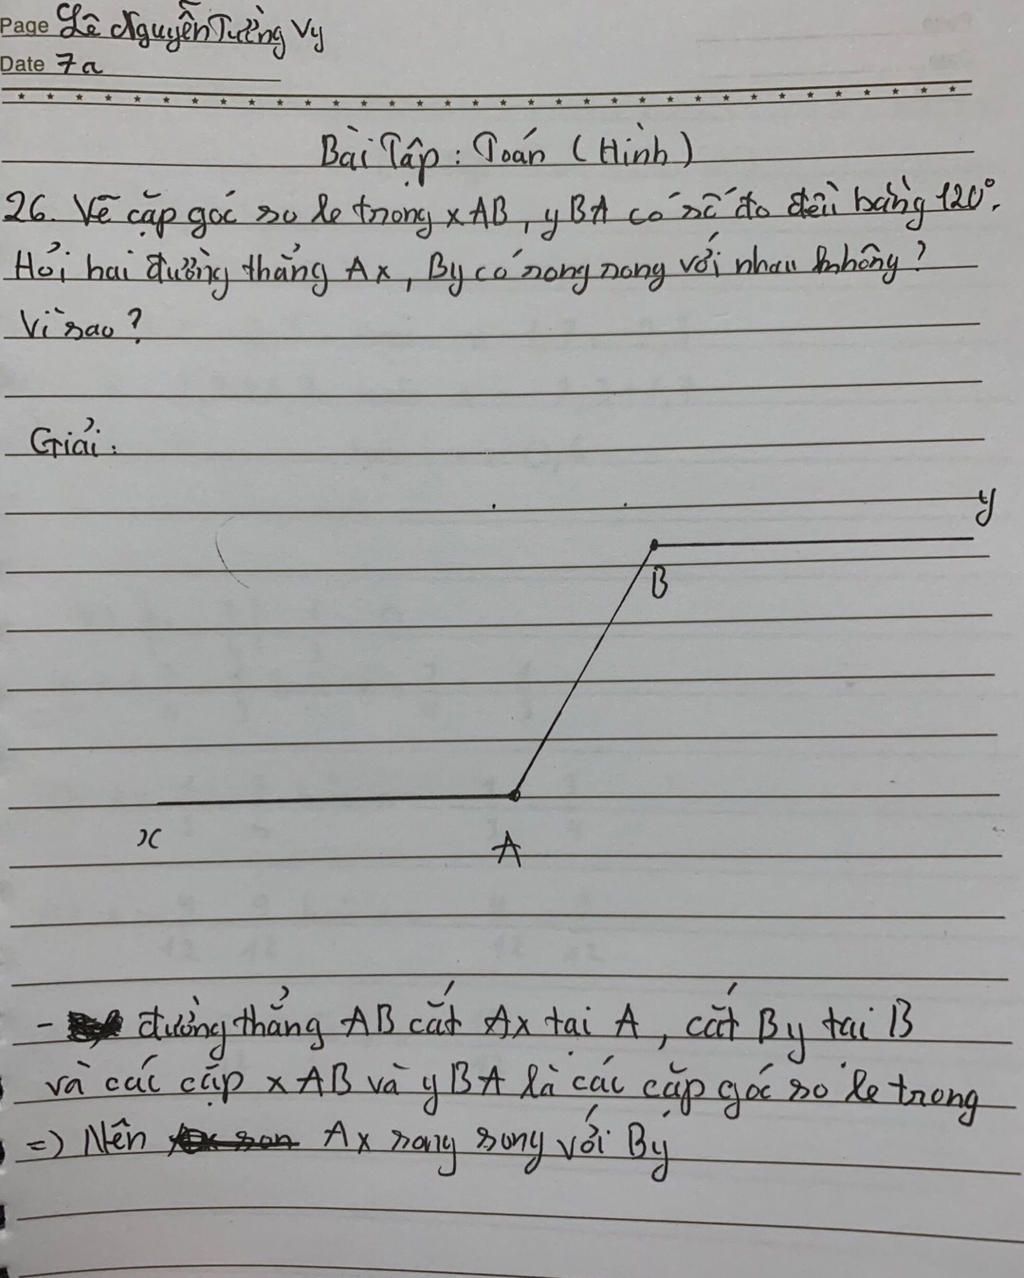 Page Lê Nguyễn Tường Vy
Date 7a
Bài Tập : Toán (Hình)
26. Vẽ cặp góc so le trong xAB, yBA có số đo đều bằng 120°.
Hỏi hai đường thẳng Ax, By có song song với nhau không?
Vì sao?
Giải:
y
B
x
A
- đường thẳng AB cắt Ax tại A, cắt By tại B
và các cặp xAB và yBA là các cặp góc so le trong
=) Nên Ax song song với By